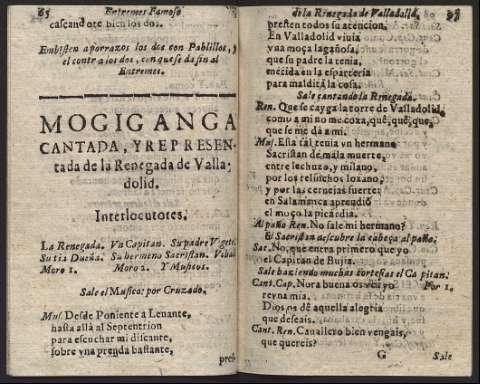 65 Entremes Famoso
cascandose bien los dos.
Embisten aporrazos los dos con Pablillos, y
el contra los dos, con que se da fin al
Entremes.
MOGIGANGA
CANTADA, Y REPRESEN-
tada de la Renegada de Valla-
dolid.
Interlocutores.
La Renegada. Vn Capitan. Su padre Vegete.
Su tia Dueña. Su hermano Sacristan.
Moro 1. Moro 2. Y Musicos.
Sale el Musico: por Cruzado.
Mus. Desde Poniente a Leuante,
hasta allà al Septentrion
para escuchar mi discante,
sobre vna prenda bastante,
pres-
de la Renegada de Valladolid.
presten todos su atencion.
En Valladolid viuia
vna moça lagañosa,
que su padre la tenia,
metida en la esparteria
para maldita la cosa.
Sale cantando la Renegada.
Ren. Que se cayga la torre de Valladolid,
como a mi no me coxa, què, què, que,
que se me dà a mi.
Mus. Esta tal tenia vn hermano
Sacristan de mala muerte,
entre lechuzo, y milano,
por los relinchos loçano,
y por las cernejas fuerte;
en Salamanca aprendiò
el moço la picardia.
Al paño Ren. No sale mi hermano?
El Sacristan descubre la cabeça al paño.
Sac. No, que entra primero que yo
el Capitan de Bujia.
Sale haziendo muchas cortesias el Capitan.
Cant. Cap. Nora buena os vea yo Por 1.
reyna mia,
Dios os dè aquella alegria
que deseais.
Cant. Ren. Cauallero bien vengais,
que quereis?
G Sale